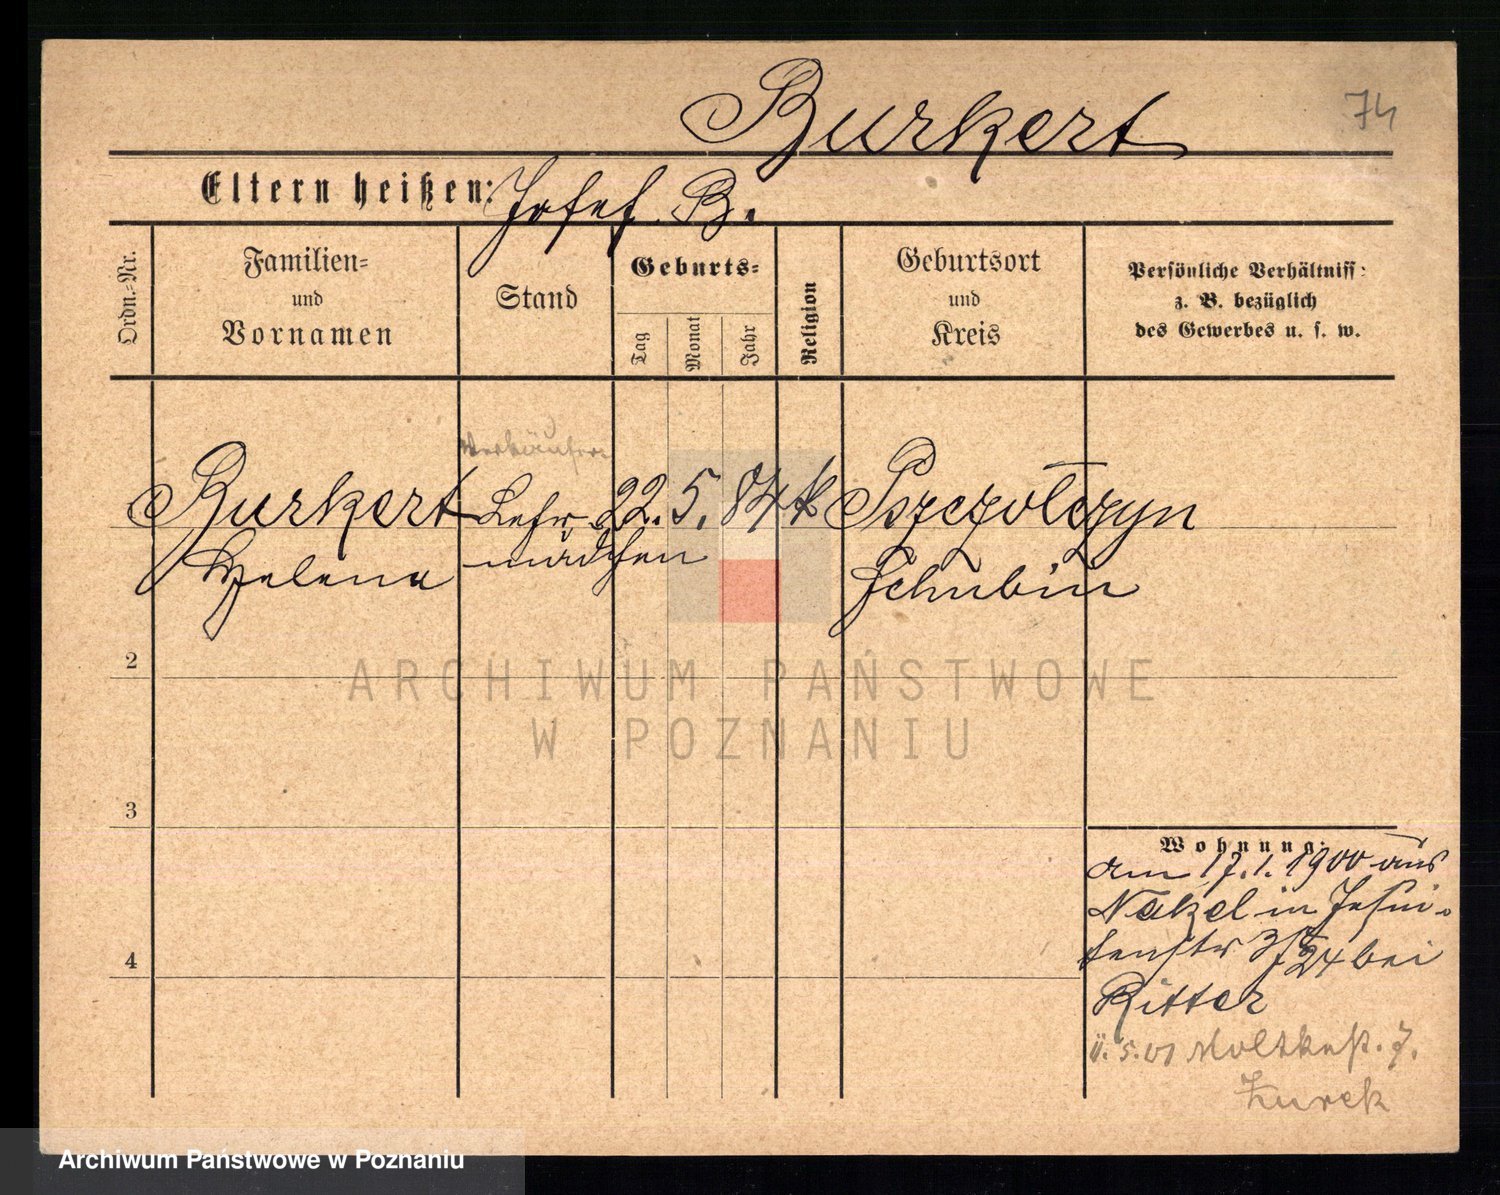 Burkert
74
Eltern heißen: Josef B.
Ordn.-Nr.
Familien-
und
Vornamen
Stand
Geburts-
Tag
Monat
Jahr
Religion
Geburtsort
und
Kreis
Persönliche Verhältniss:
z. B. bezüglich
des Gewerbes u. s. w.
Verkäuferin
Burkert Lehr- 22. 5. 84 k Pszczolczyn
Helene mädchen Schubin
2
3
4
Wohnung:
am 17.1.1900 aus
Nakel in Jesui-
tenstr bei
Ritter
5.01 Moltkestr. 7.
Zurek
ARCHIWUM PAŃSTWOWE
W POZNANIU
Archiwum Państwowe w Poznaniu